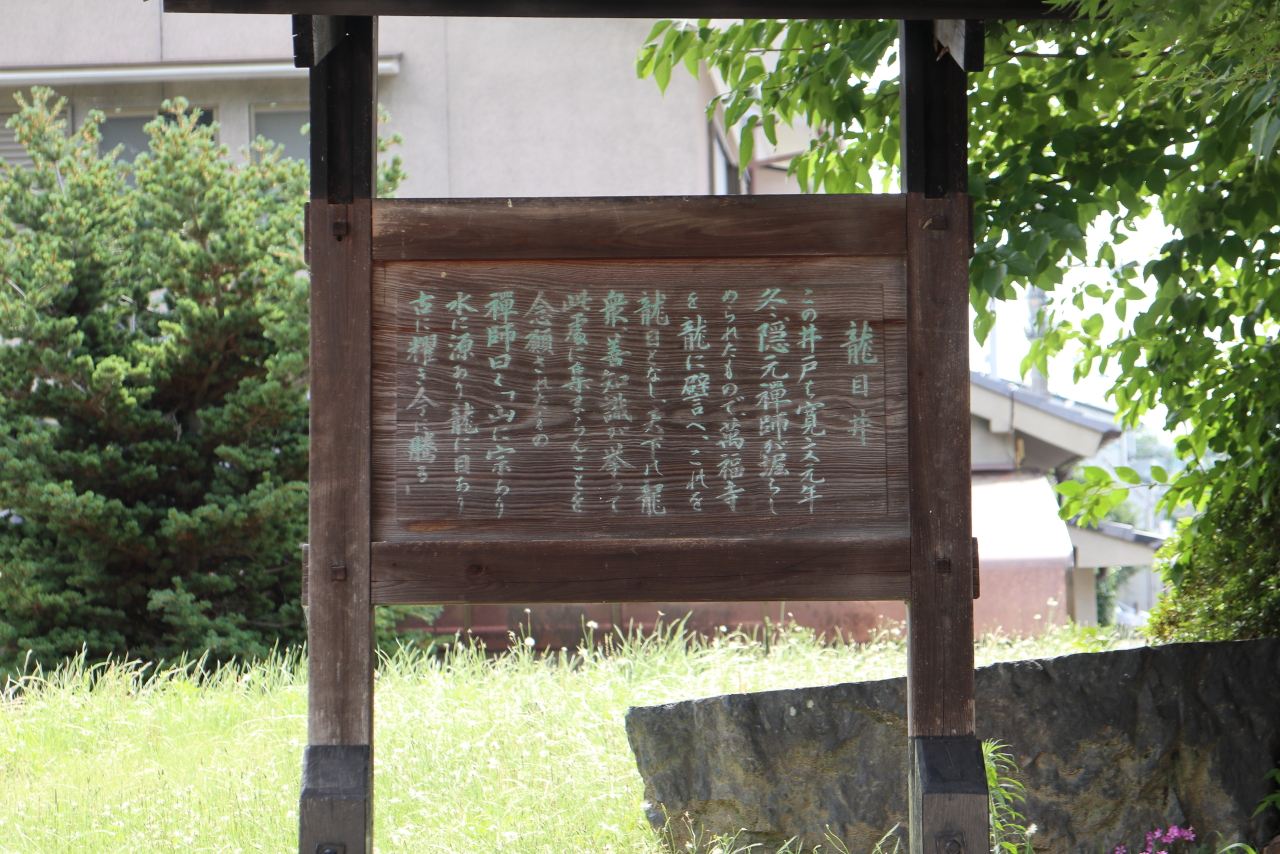 龍目井
この井戸も寛文元年
冬、隠元禪師が堀らし
められたもので、萬福寺
を龍に譬へ、これを
龍目となし、天下の龍
衆、善知識が挙って
此處に集まらんことを
念願されたもの
禪師曰く「山に宗あり
水に源あり龍に目あり
古に耀き今に騰る